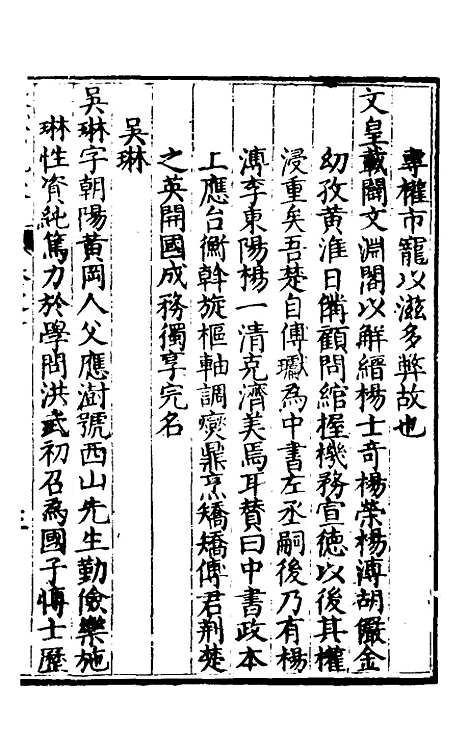 專權市寵以滋多弊故也
文皇載闢文淵閣以解縉楊士奇楊榮楊溥胡儼金
幼孜黃淮日備顧問綰握機務宣德以後其權
浸重矣吾楚自傅瓛為中書左丞嗣後乃有楊
溥李東陽楊一清克濟美焉耳贊曰中書政本
上應台衡斡旋樞軸調爕鼎烹矯矯傅君荆楚
之英開國成務獨享完名
吳琳
吳琳字朝陽黃岡人父應澍號西山先生勤儉樂施
琳性資純篤力於學問洪武初召為國子博士歷